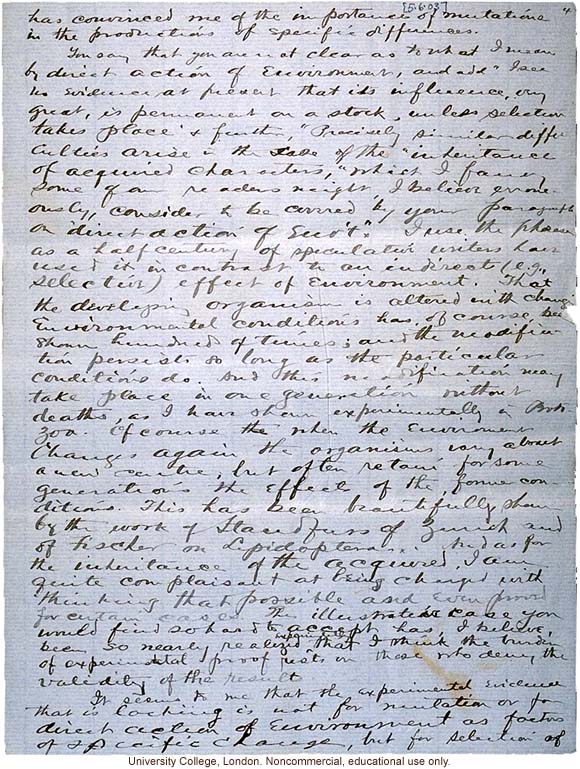 [5.6.03]
4
has convinced me of the importance of mutations
in the production of specific differences.
You say that you are not clear as to what I mean
by direct action of Environment, and add "I see
no evidence at present that its influence, very
great, is permanent on a stock, unless selection
takes place" & further, "Precisely similar diffi-
culties arise in the case of the "inheritance
of acquired characters," which I fancy
some of our readers might, I believe errone-
ously, consider to be covered by your paragraph
on direct action of Env't." I use the phrase
as a half century of speculative writers have
used it in contrast to an indirect (e.g.,
selective) effect of Environment. That
the developing organism is altered with change
Environmental conditions has, of course, been
shown hundreds of times; and the modifica-
tion persists so long as the particular
conditions do. And this modification may
take place in one generation without
deaths, as I have shown experimentally in Proto
zoa. Of course the when the Environment
changes again the organisms vary about
a new centre; but often retain for some
generations the effects of the former con-
ditions. This has been beautifully shown
by the work of Standfuss of Zurich and
of Fischer on Lepidoptera. And as for
the inheritance of the acquired, I am
quite complaisant at being charged with
thinking that possible and even proved
for certain cases. The illustrative case you
would find so hard to accept has, I believe,
been so nearly realized experimentally that I think the burden
of experimental proof rests on those who deny the
validity of the result
It seems to me that the experimental evidence
that is lacking is not for mutation or for
direct action of Environment as factors
of specific change, but for selection of
University College, London. Noncommercial, educational use only.